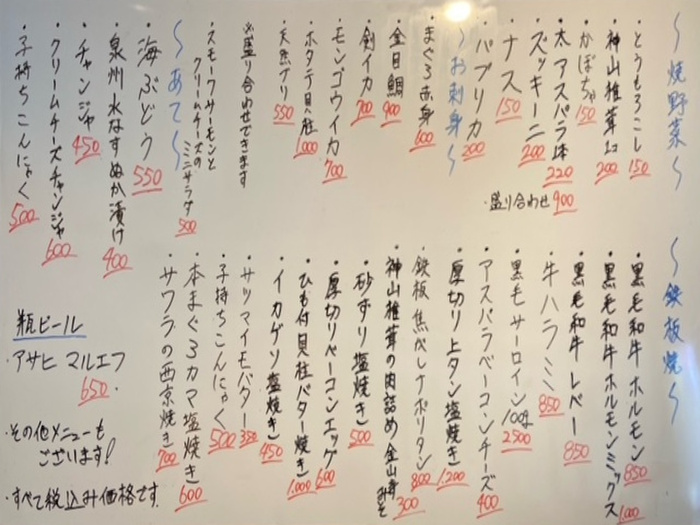 〜焼野菜〜
・とうもろこし 150
・神山椎茸 1コ 200
・かぼちゃ 150
・太アスパラ1本 220
・ズッキーニ 200
・ナス 150
・パプリカ 200
・盛り合わせ 900
〜お刺身〜
・まぐろ赤身 600
・金目鯛 900
・剣イカ 700
・モンゴウイカ 700
・ホタテ貝柱 1000
・天然ブリ 550
※盛り合わせできます
〜あて〜
・スモークサーモンと
クリームチーズの
ミニサラダ 500
・海ぶどう 550
・泉州水なすぬか漬け 400
・チャンジャ 450
・クリームチーズチャンジャ 600
・子持ちこんにゃく 500
〜鉄板焼〜
・黒毛和牛ホルモン 850
・黒毛和牛ホルモンミックス 1,000
・黒毛和牛レバー 850
・牛ハラミ 850
・黒毛サーロイン100g 2500
・アスパラベーコンチーズ 400
・厚切り上タン塩焼き 1.200
・鉄板焦がしナポリタン 800
・神山椎茸の肉詰め 金山寺みそ 300
・砂ずり塩焼き 500
・厚切りベーコンエッグ 600
・ひも付貝柱バター焼き 1.000
・イカゲソ塩焼き 450
・サツマイモバター 350
・子持ちこんにゃく 500
・本まぐろカマ塩焼き 600
・サワラの西京焼き 700
瓶ビール
・アサヒ マルエフ
650.
・その他メニューも
ございます!
・すべて税込み価格です.